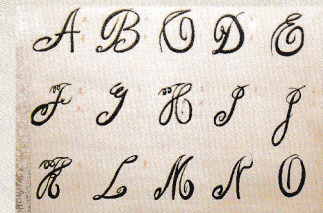 A B C D E
F G H I J
K L M N O